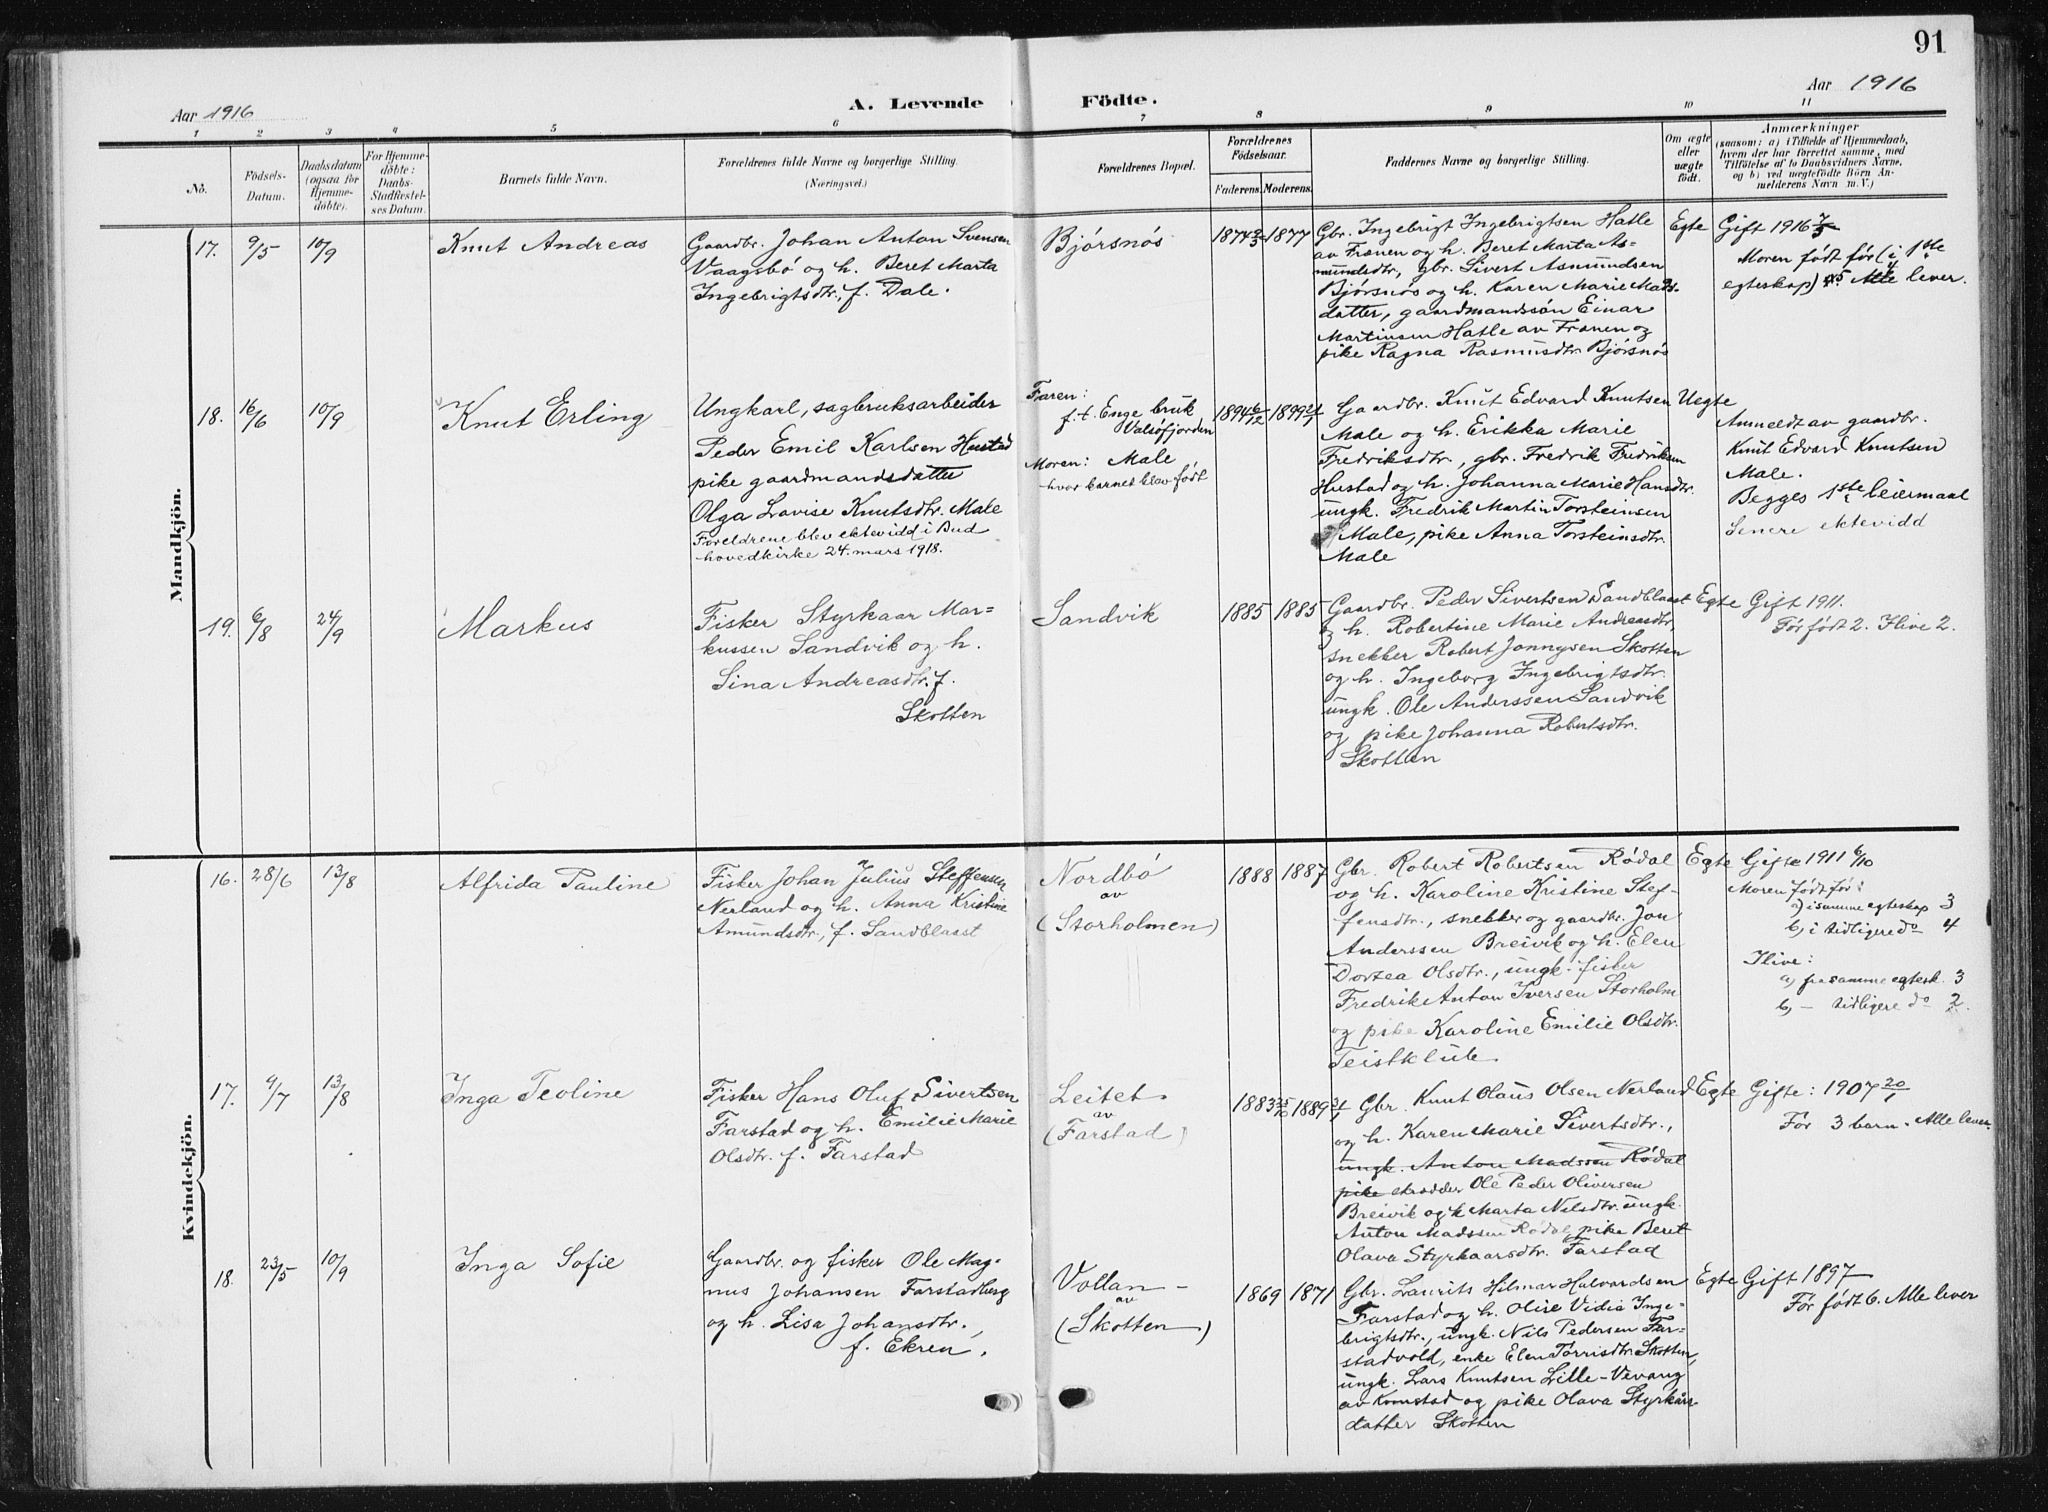 91
Aar 1916
A. Levende Födte.
Aar 1916
1 2 3 4 5 6 7 8 9 10 11
No.
Födsels-
Datum.
Daabsdatum
(ogsaa for
Hjemme-
döbte).
For Hjemme-
döbte:
Daabs-
Stadfæstel-
ses Datum.
Barnets fulde Navn.
Forældrenes fulde Navne og borgerlige Stilling.
(Næringsvei.)
Forældrenes Bopæl.
Forældrenes
Födselsaar.
Faderens. Moderens.
Faddernes Navne og borgerlige Stilling.
Om ægte
eller
uægte
födt.
Anmærkninger
(saasom: a) i Tilfælde af Hjemmedaab,
hvem der har forrettet samme, med
Tilföielse af to Daabsvidners Navne,
og b) ved uægtefödte Börn An-
melderens Navn m. V.)
Mandkjön.
17. 9/5 10/9
Knut Andreas
Gaardbr. Johan Anton Svensen
Vaagsbö og h. Beret Marta
Ingebrigtsdtr., f. Dale.
Bjørsnøs
1874 1877
Gbr. Ingebrigt Ingebrigtsen Hatle
av Frænen og h. Beret Marta As-
mundsdtr, gbr. Sivert Asmundsen
Bjørsnøs og h. Karen Marie Mads-
datter, gaardmandssøn Einar
Martinsen Hatle av Frænen og
pike Ragna Rasmusdtr. Bjørsnøs
Egte
Gift 1916
Moren født før (i 1ste
egteskap) 5 Alle lever.
18. 16/6 10/9
Knut Erling
Ungkarl, sagbruksarbeider
Peder Emil Karlsen Hustad
pike gaardmandsdatter
Olga Lovise Knutsdtr. Male
Foreldrene blev ektevidd i Bud
hovedkirke 24. mars 1918.
Faren:
f.t. Enge bruk
Valsøfjorden
Moren: Male
hvor barnet blev født
1894 6/12 1899
Gaardbr. Knut Edvard Knutsen
Male og h. Erikka Marie
Fredriksdtr., gbr. Fredrik Fredriksen
Hustad og h. Johanna Marie Hansdtr.
ungk. Fredrik Martin Torsteinsen
Male, pike Anna Torsteinsdtr.
Male
Uegte
Anmeldt av gaardbr.
Knut Edvard Knutsen
Male.
Begges 1ste leiermaal
Senere ektevidd
19. 6/8 24/9
Markus
Fisker Styrkaar Mar-
kussen Sandvik og h.
Sina Andreasdtr. f.
Skotten
Sandvik
1885 1885
Gaardbr. Peder Sivertsen Sandblaast
og h. Robertine Marie Andreasdtr,
snekker Robert Jonnysen Skotten
og h. Ingeborg Ingebrigtsdtr.
ungk. Ole Anderssen Sandvik
og pike Johanna Robertsdtr.
Skotten
Egte
Gift 1911.
Før født 2. Ilive 2.
Kvindekjön.
16. 28/6 13/8
Alfrida Pauline
Fisker Johan Julius Steffensen
Nerland og h. Anna Kristine
Amundsdtr., f. Sandblaast
Nordbö
av
(Storholmen)
1888 1887
Gbr. Robert Robertsen Rødal
og h. Karoline Kristine Stef-
fensdtr., snekker og gaardbr. Jon
Anderssen Breivik og h. Elen
Dortea Olsdtr., ungk. fisker
Fredrik Anton Iversen Storholm
og pike Karoline Emilie Olsdtr.
Teistklub
Egte
Gifte 1911 6/10
Moren født før:
a) i samme egteskap 3
b, i tidligere do 4
Ilive:
a, fra samme egtesk. 3
b, – tidligere do 2.
17. 9/7 13/8
Inga Teoline
Fisker Hans Oluf Sivertsen
Farstad og h. Emilie Marie
Olsdtr. f. Farstad
Leitet
av
(Farstad)
1883 1889
Gbr. Knut Olaus Olsen Nerland
og h. Karen Marie Sivertsdtr.,
ungk. Anton Madssen Rødal
pike skrædder Ole Peder Oliversen
Breivik og h. Marta Nilsdtr. ungk.
Anton Madssen Rødal, pike Beret
Olava Styrkaarsdtr. Farstad
Egte
Gifte: 1907 20/1
Før 3 barn. Alle lever.
18. 23/5 10/9
Inga Sofie
Gaardbr. og fisker Ole Mag-
nus Johansen Farstadberg
og h. Lisa Johansdtr.,
f. Ekren.
Vollan
av
(Skotten)
1869 1871
Gbr. Laurits Hilmar Halvardsen
Farstad og h. Olise Vidia Inge-
brigtsdtr., ungk. Nils Pedersen Far-
stadvold, enke Elen Torrisdtr. Skotten,
ungk. Lars Knutsen Lille-Vevang
av Kornstad og pike Olava Styrkårs-
datter Skotten
Egte
Gift 1897
Før født 6. Alle lever